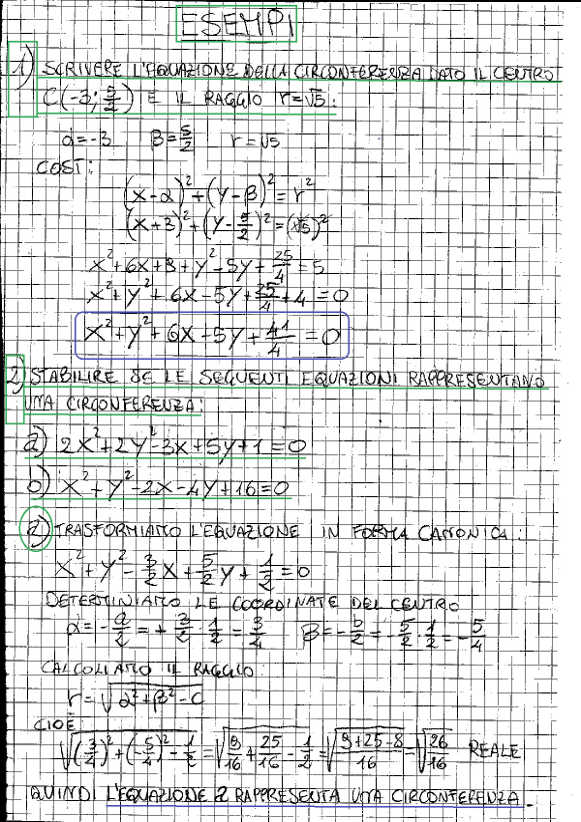 ESEMPI
1) SCRIVERE L'EQUAZIONE DELLA CIRCONFERENZA DATO IL CENTRO
C(-3; 5/2) E IL RAGGIO r=√5.
α=-3 β=5/2 r=√5
COSÌ:
(x-α)²+(y-β)²=r²
(x+3)²+(y-5/2)²=(√5)²
x²+6x+9+y²-5y+25/4=5
x²+y²+6x-5y+25/4+4=0
x²+y²+6x-5y+41/4=0
2) STABILIRE SE LE SEGUENTI EQUAZIONI RAPPRESENTANO
UNA CIRCONFERENZA:
a) 2x²+2y²-3x+5y+1=0
b) x²+y²-2x-4y+16=0
a) TRASFORMIAMO L'EQUAZIONE IN FORMA CANONICA:
x²+y²-3/2x+5/2y+1/2=0
DETERMINIAMO LE COORDINATE DEL CENTRO
α=-a/2=+3/2·1/2=3/4 β=-b/2=-5/2·1/2=-5/4
CALCOLIAMO IL RAGGIO
r=√(α²+β²-c)
CIOÈ
√((3/4)²+(-5/4)²-1/2)=√(9/16+25/16-1/2)=√((9+25-8)/16)=√(26/16) REALE
QUINDI L'EQUAZIONE a RAPPRESENTA UNA CIRCONFERENZA.